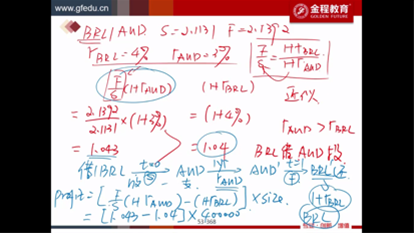 www.gfedu.cn
金程教育
GOLDEN FUTURE
BRL|AUD S=2.1131 F=2.1392
r_BRL=4% r_AUD=3% |F/S = (1+r_BRL)/(1+r_AUD)|
F/S (1+r_AUD) (1+r_BRL)
= 2.1392/2.1131 × (1+3%) = (1+4%) r_AUD > r_BRL
= 1.043 1.04 BRL借 AUD投
借BRL t=0 → AUD → AUD' t=1 → BRL' 还
S r_AUD F (1+r_BRL)
profit = [F/S (1+r_AUD) - (1+r_BRL)] × size
BRL
= [1.043 - 1.04] × 400000
53-368